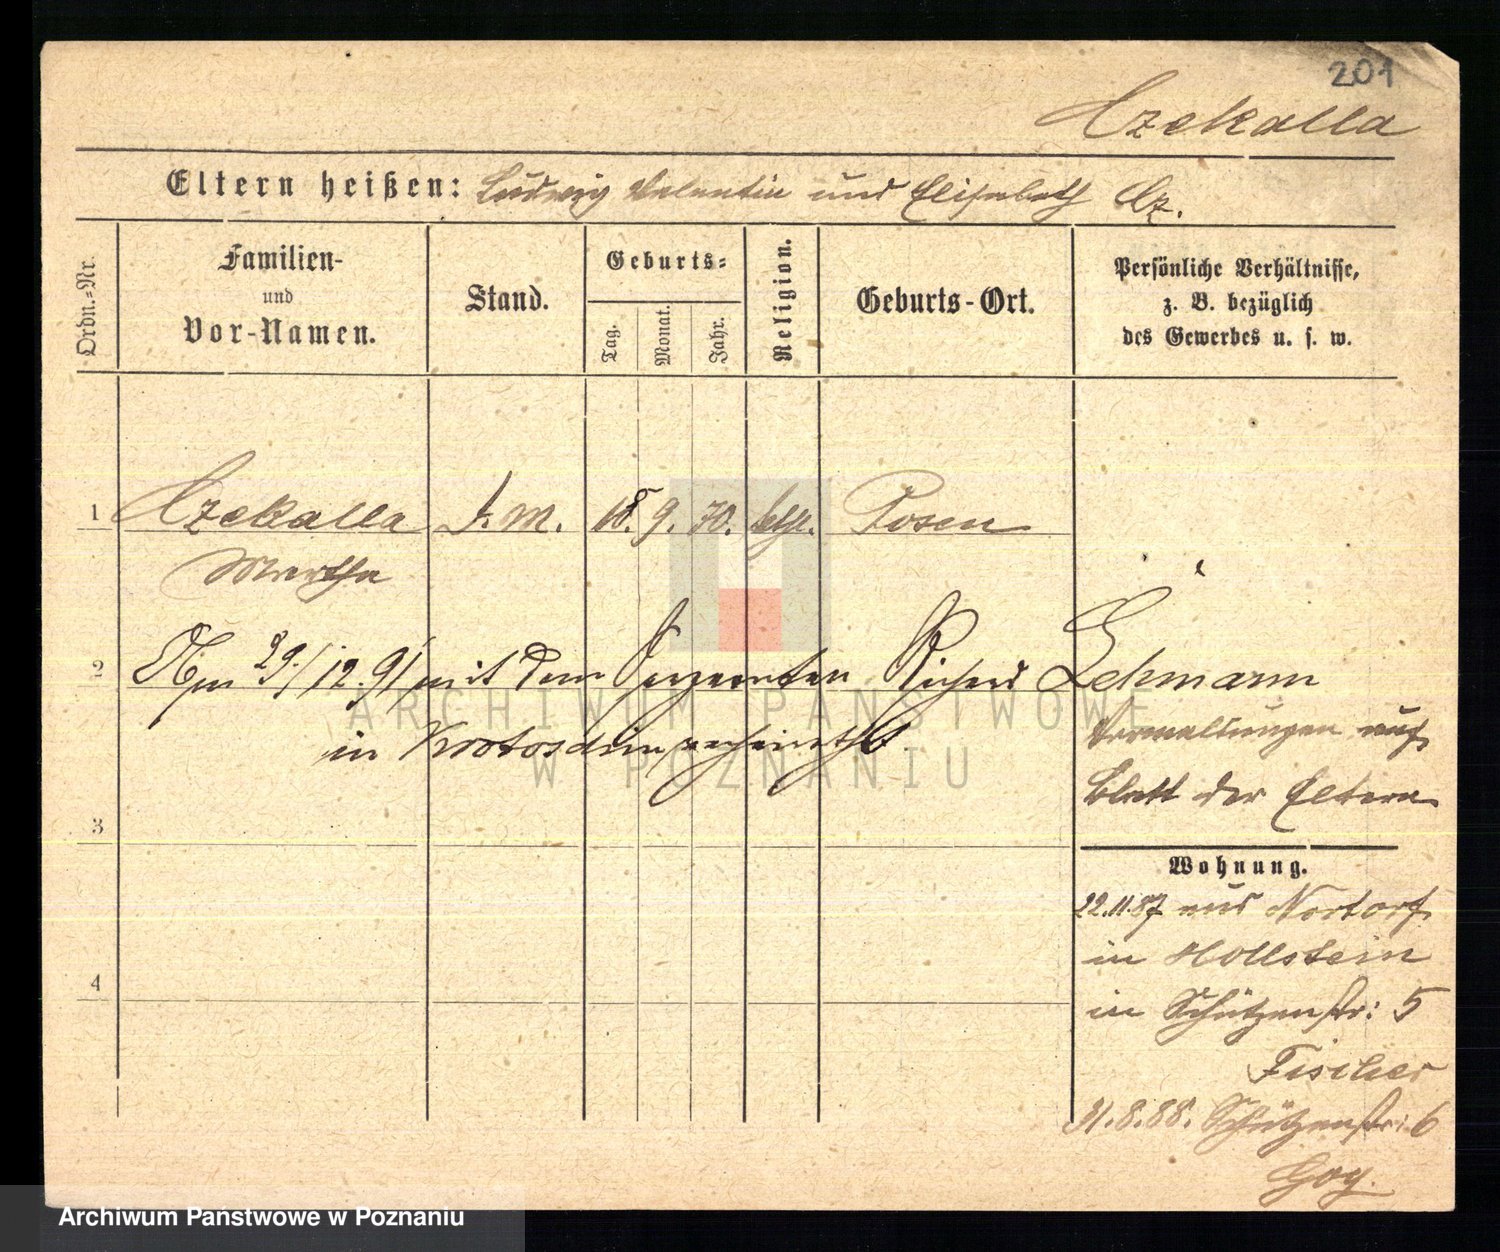 201
Czekalla
Eltern heißen: Ludwig Valentin und Elisabeth Cz.
Ordn.-Nr.
Familien-
und
Vor-Namen.
Stand.
Geburts-
Tag.
Monat.
Jahr.
Religion.
Geburts-Ort.
Persönliche Verhältnisse,
z. B. bezüglich
des Gewerbes u. s. w.
1 Czekalla 18. 9. 70. kath. Posen
Martha
2 Am 29/12.91 mit dem Sergeanten Richard Lehmann
in Krotoschin verheirathet
Vermaltungen auf
Blatt der Eltern
3
Wohnung.
22.11.87 aus Nortorf
in Hollstein
4
in Schützenstr: 5
Fischer
31.8.88. Schützenstr: 6
ARCHIWUM PAŃSTWOWE
W POZNANIU
Archiwum Państwowe w Poznaniu